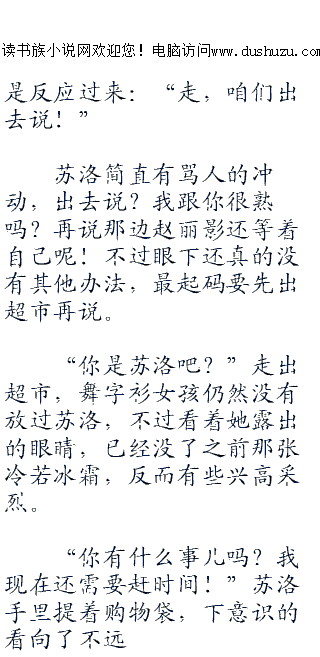 读书族小说网欢迎您！电脑访问www.dushuzu.com
是反应过来：“走，咱们出
去说！”
苏洛简直有骂人的冲
动，出去说？我跟你很熟
吗？再说那边赵丽影还等着
自己呢！不过眼下还真的没
有其他办法，最起码要先出
超市再说。
“你是苏洛吧？”走出
超市，舞字衫女孩仍然没有
放过苏洛，不过看着她露出
的眼睛，已经没了之前那张
冷若冰霜，反而有些兴高采
烈。
“你有什么事儿吗？我
现在还需要赶时间！”苏洛
手里提着购物袋，下意识的
看向了不远